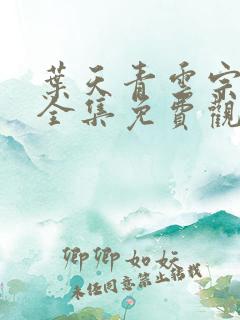 葉天青雲宗
全集免費觀
卿卿如妘
未经同意禁止转载